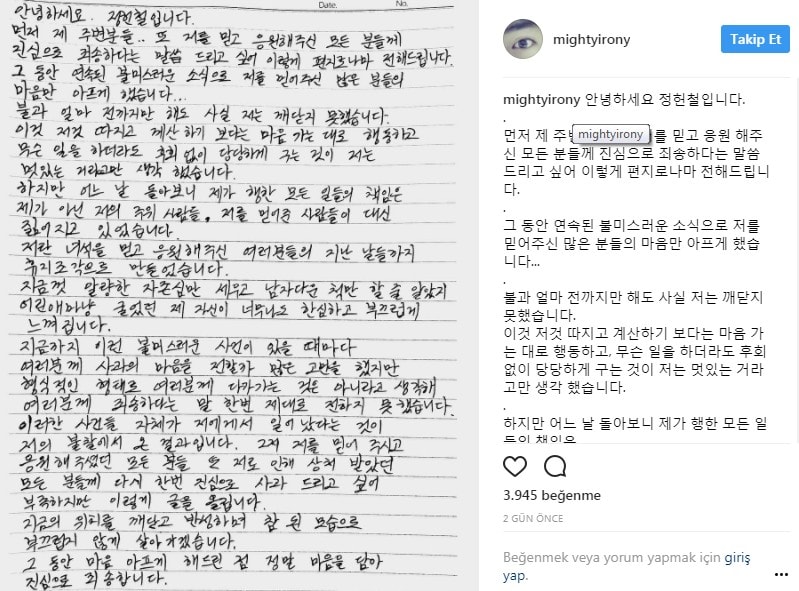 Date. No.
안녕하세요. 정헌철입니다.
먼저 제 주변분들.. 또 저를 믿고 응원해주신 모든 분들께
진심으로 죄송하다는 말씀 드리고 싶어 이렇게 편지로나마 전해드립니다.
그 동안 연속된 불미스러운 소식으로 저를 믿어주신 많은 분들의
마음만 아프게 했습니다...
불과 얼마 전까지만 해도 사실 저는 깨닫지 못했습니다.
이것 저것 따지고 계산하기 보다는 마음 가는 대로 행동하고
무슨 일을 하더라도 후회 없이 당당하게 구는 것이 저는
멋있는 거라고만 생각 했습니다.
하지만 어느 날 돌아보니 제가 행한 모든 일들의 책임은
제가 아닌 저의 주위 사람들, 저를 믿어준 사람들이 대신
짊어지고 있었습니다.
저란 녀석을 믿고 응원해주신 여러분들의 지난 날들까지
휴지조각으로 만들었습니다.
지금껏 알량한 자존심만 세우고 남자다운 척만 할 줄 알았지
어린애마냥 굴었던 제 자신이 너무나도 한심하고 부끄럽게
느껴집니다.
지금까지 이런 불미스러운 사건이 있을 때마다
여러분께 사과의 마음을 전할까 많은 고민을 했지만
형식적인 형태로 여러분께 다가가는 것은 아니라고 생각해
여러분께 죄송하다는 말 한번 제대로 전하지 못했습니다.
이러한 사건들 자체가 저에게서 일어났다는 것이
저의 불찰에서 온 결과입니다. 그저 저를 믿어 주시고
응원해주셨던 모든 분들 또 저로 인해 상처 받았던
모든 분들께 다시 한번 진심으로 사과 드리고 싶어
부족하지만 이렇게 글을 올립니다.
지금의 위치를 깨닫고 반성하며 참 된 모습으로
부끄럽지 않게 살아가겠습니다.
그 동안 마음 아프게 해드린 점 정말 마음을 담아
진심으로 죄송합니다.
mightyirony
Takip Et
mightyirony 안녕하세요 정헌철입니다.
.
먼저 제 주변 mightyirony 를 믿고 응원 해주
신 모든 분들께 진심으로 죄송하다는 말씀
드리고 싶어 이렇게 편지로나마 전해드립니
다.
.
그 동안 연속된 불미스러운 소식으로 저를
믿어주신 많은 분들의 마음만 아프게 했습
니다...
.
불과 얼마 전까지만 해도 사실 저는 깨닫지
못했습니다.
이것 저것 따지고 계산하기 보다는 마음 가
는 대로 행동하고, 무슨 일을 하더라도 후회
없이 당당하게 구는 것이 저는 멋있는 거라
고만 생각 했습니다.
.
하지만 어느 날 돌아보니 제가 행한 모든 일
들의 책임은
3.945 beğenme
2 GÜN ÖNCE
Beğenmek veya yorum yapmak için giriş
yap.